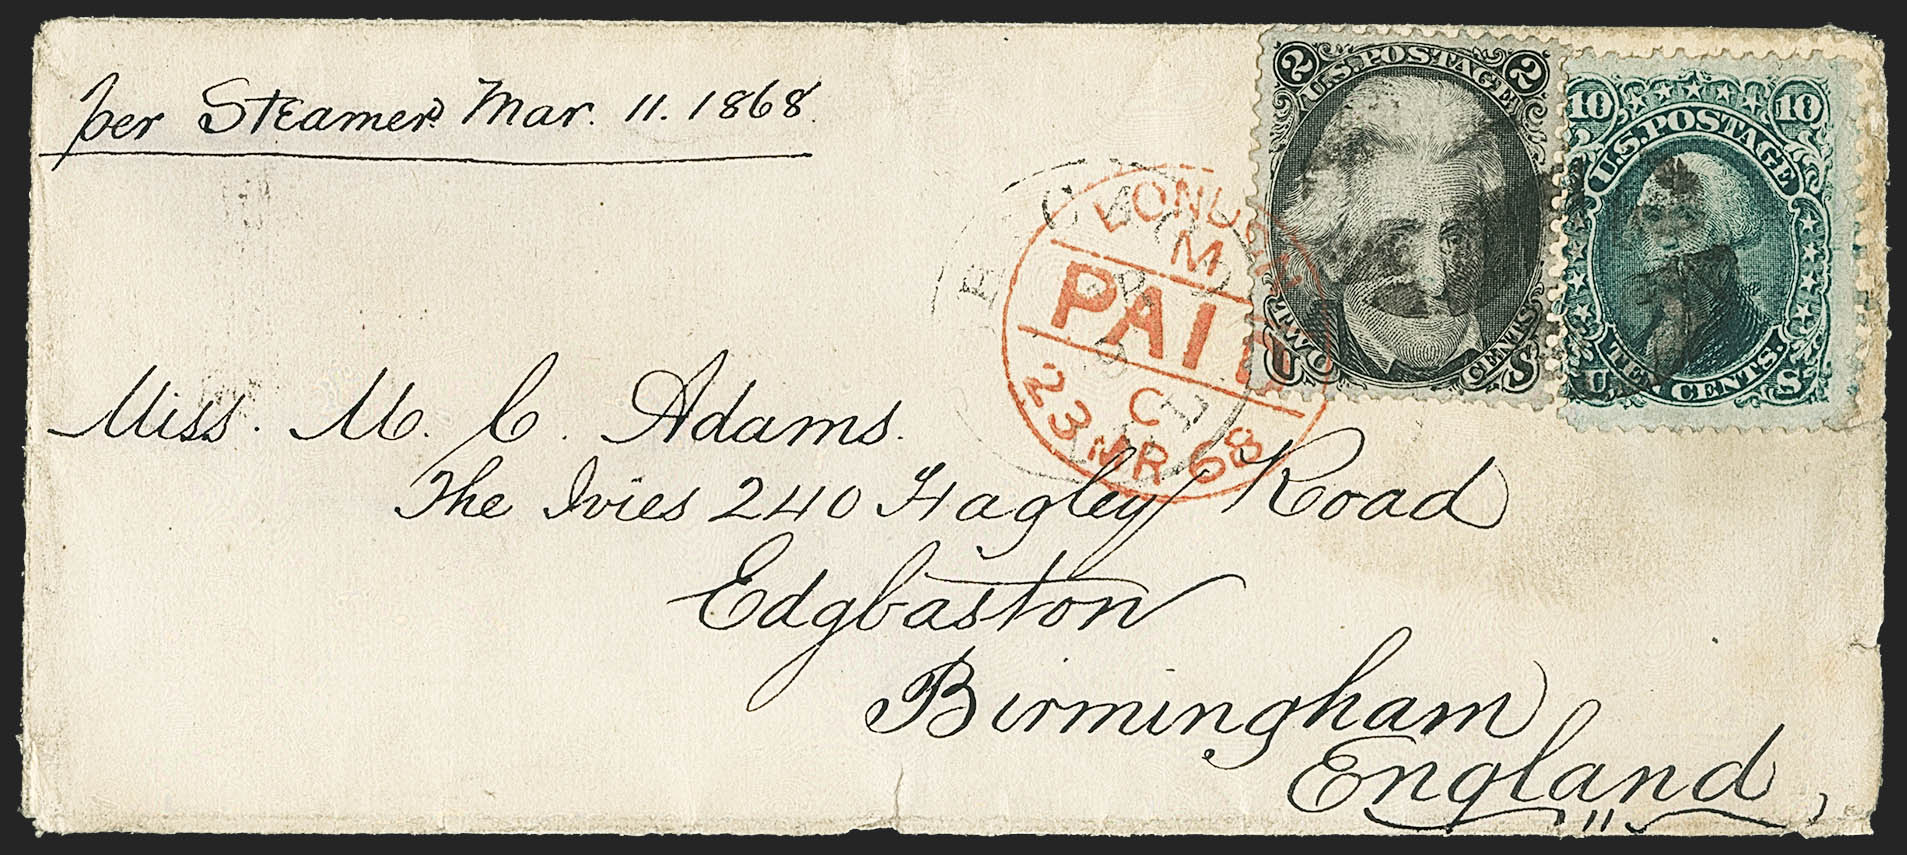 per Steamer Mar. 11. 1868.
2 U.S. POSTAGE 2
TWO CENTS
U S
10 10
U.S. POSTAGE
TEN CENTS.
U S
LONDON
M
PAID
C
23 MR 68
CHICAGO
Miss. M. C. Adams.
The Ivies 240 Hagley Road
Edgbaston
Birmingham
England,